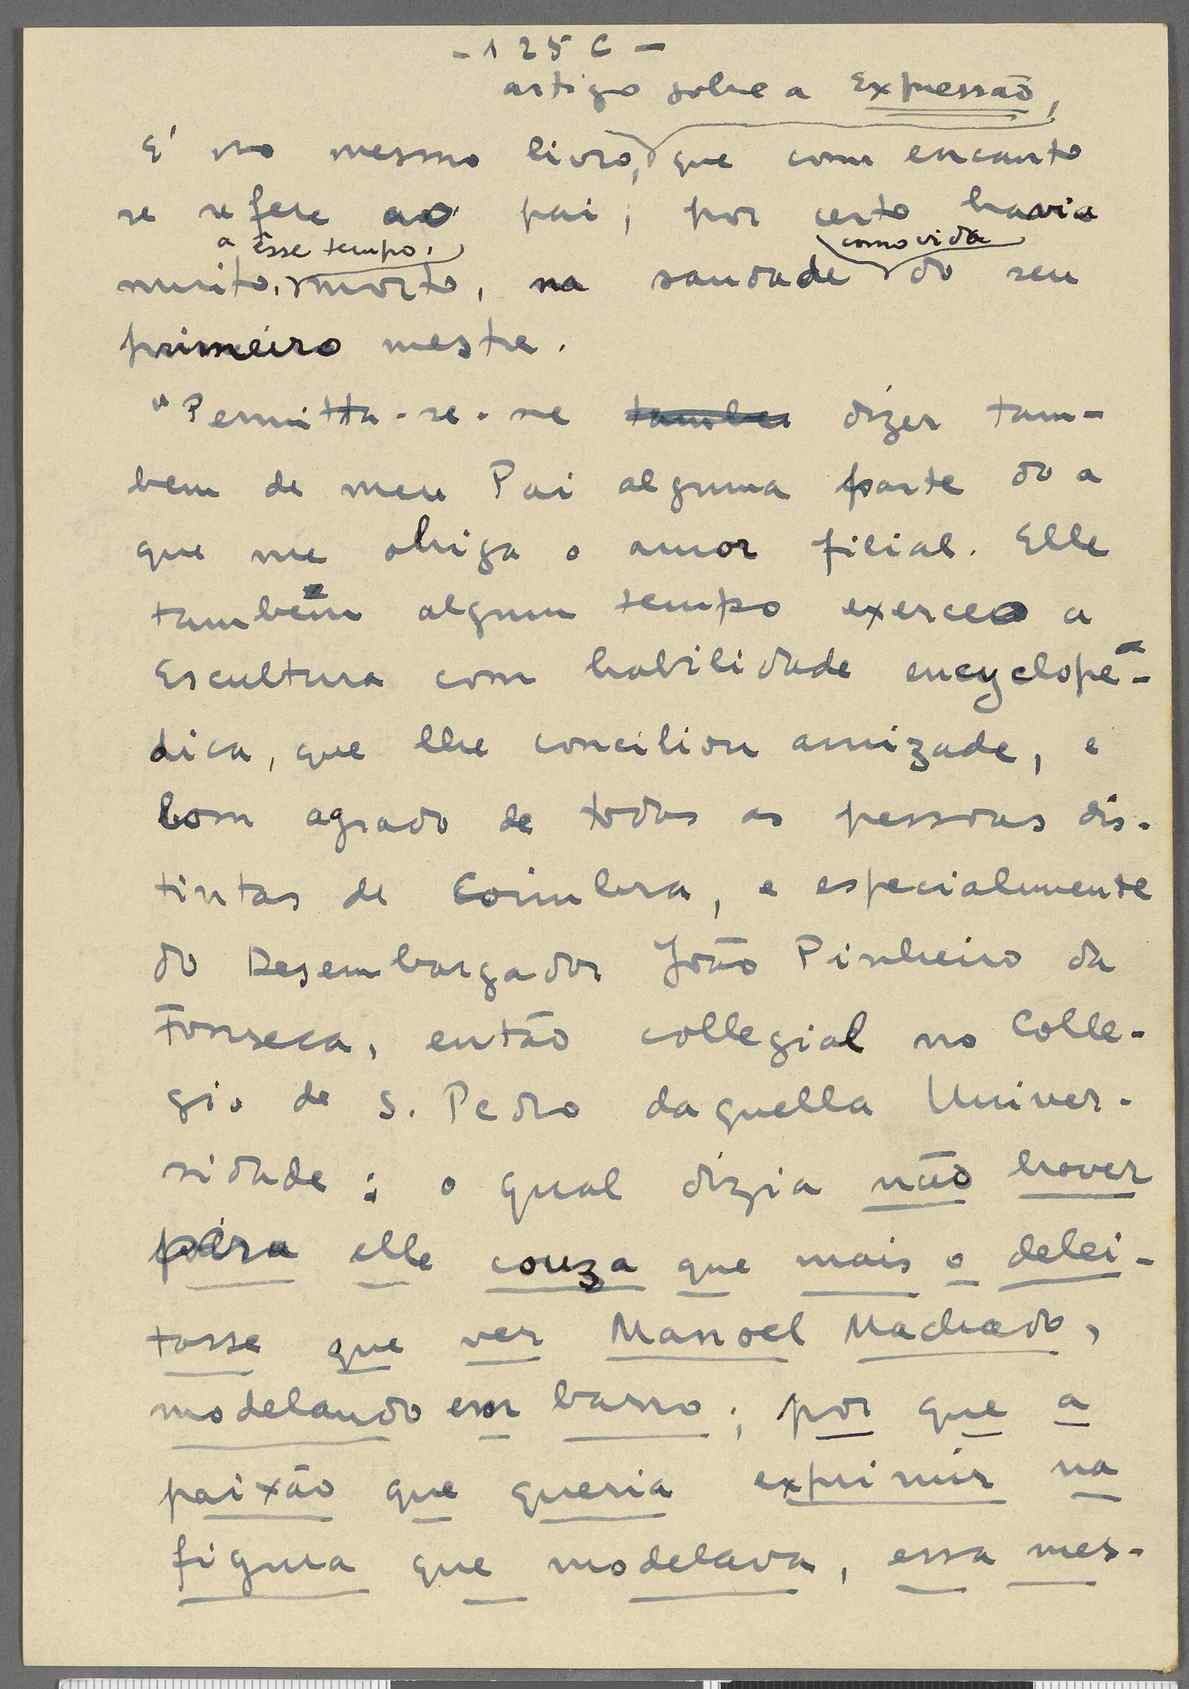 - 125 C -
artigo sobre a Expressão,
E' no mesmo livro, que com encanto
se refere ao pai, por certo havia
a esse tempo, comovida
muito, morto, na saudade do seu
primeiro mestre.
"Permitta-se-me tambem dizer tam-
bem de meu Pai alguma parte do a
que me obriga o amor filial. Elle
tambem algum tempo exerceo a
Escultura com habilidade encyclopé-
dica, que lhe conciliou amizade, e
bom agrado de todas as pessoas dis-
tintas de Coimbra, e especialmente
do Desembargador João Pinheiro da
Fonseca, então collegial no Colle-
gio de S. Pedro daquella Univer-
sidade; o qual dizia não haver
para elle couza que mais o delei-
tasse que ver Manoel Machado,
modelando em barro; por que a
paixão que queria exprimir na
figura que modelava, essa mes-